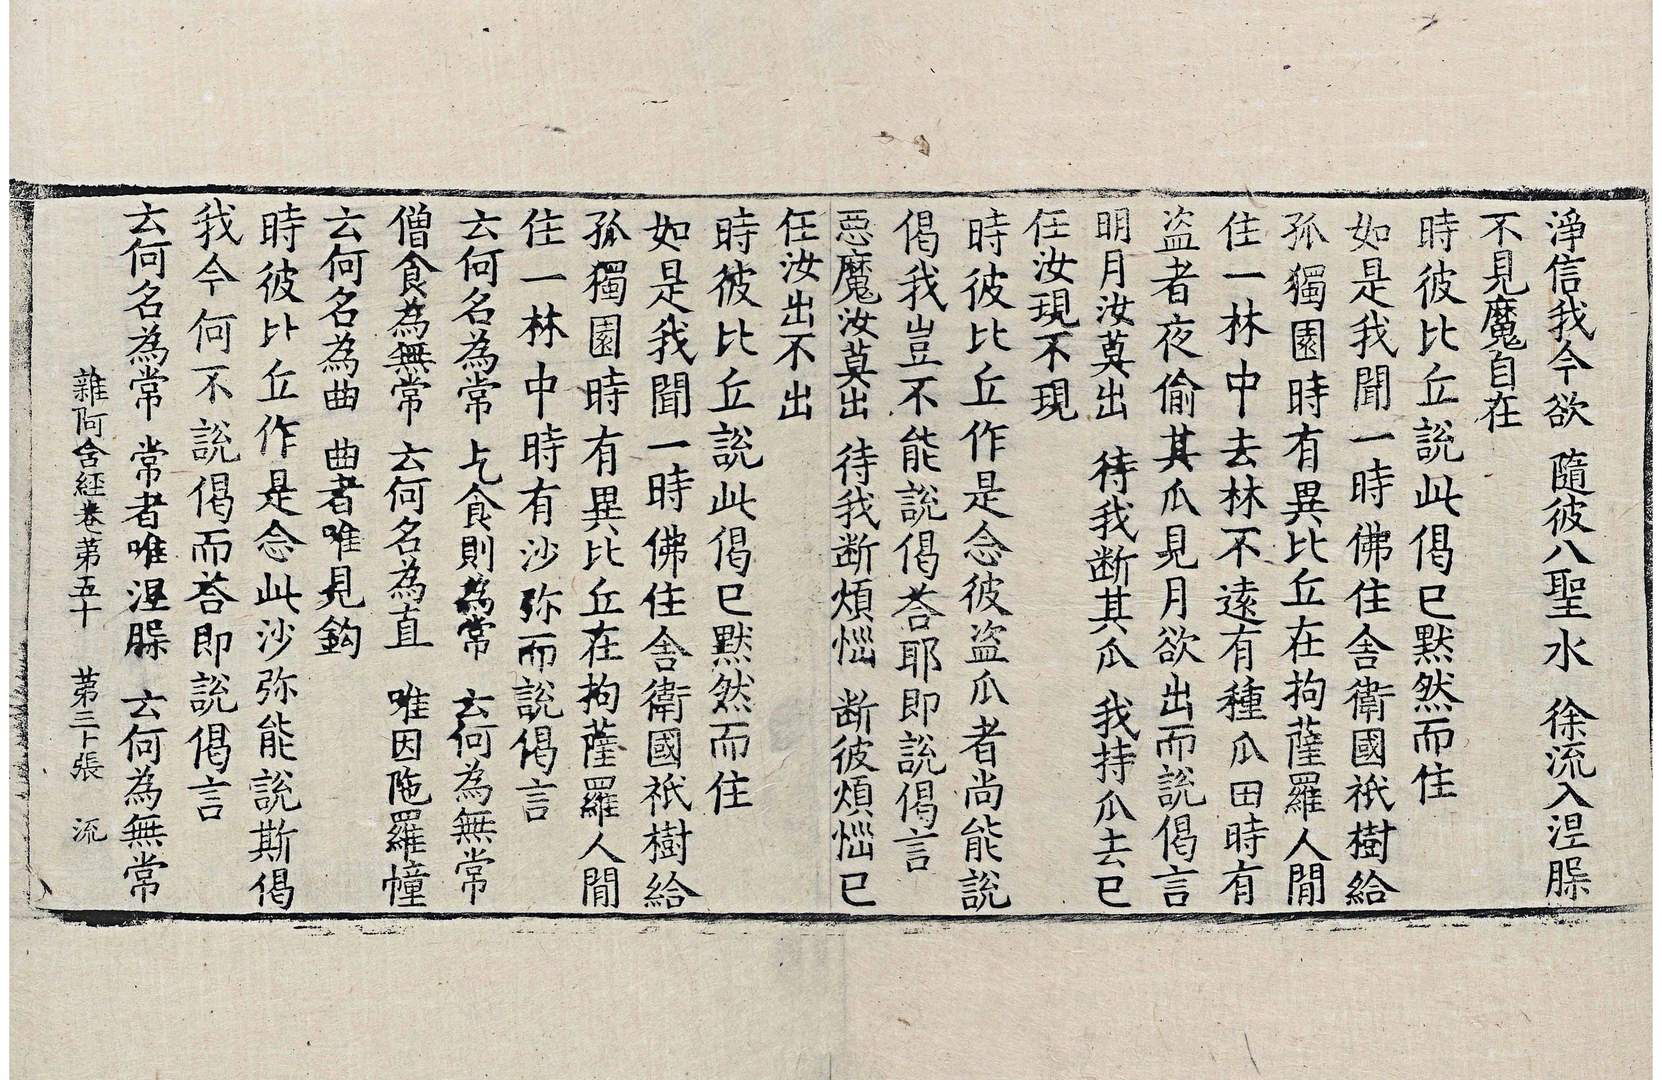 淨信我今欲 隨彼八聖水 徐流入涅脲
不見魔自在
時彼比丘說此偈已黙然而住
如是我聞一時佛住舎衛國祇樹給
孤獨園時有異比丘在拘薩羅人間
住一林中去林不遠有種瓜田時有
盗者夜偷其瓜見月欲出而說偈言
明月汝莫出 待我断其瓜 我持瓜去已
任汝現不現
時彼比丘作是念彼盗瓜者尚能說
偈我豈不能說偈荅耶即說偈言
惡魔汝莫出 待我断煩惱 断彼煩惱已
任汝出不出
時彼比丘說此偈已黙然而住
如是我聞一時佛住舎衛國祇樹給
孤獨園時有異比丘在拘薩羅人間
住一林中時有沙弥而說偈言
云何名為常 乞食則為常 云何為無常
僧食為無常 云何名為直 唯因陁羅幢
云何名為曲 曲者唯見鈎
時彼比丘作是念此沙弥能說斯偈
我今何不說偈而荅即說偈言
云何名為常 常者唯涅脲 云何為無常
雜阿含經卷第五十 第三十張 流